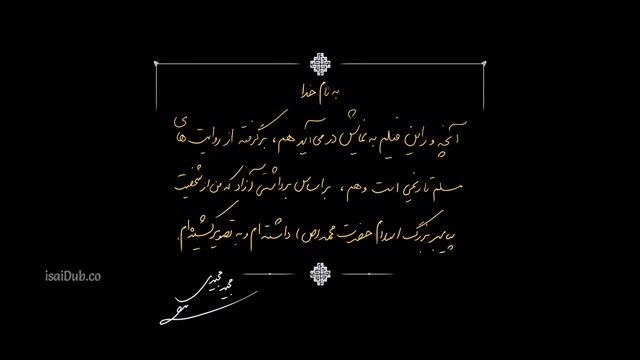 به نام خدا
آنچه در این فیلم به نمایش در می‌آید هم، برگرفته از روایت های
مسلم تاریخی است و هم، براساس برداشتی آزاد که من از شخصیت
پیامبر بزرگ اسلام حضرت محمد (ص) داشته ام و به تصویر کشیده‌ام.
isaiDub.co
مجید مجیدی